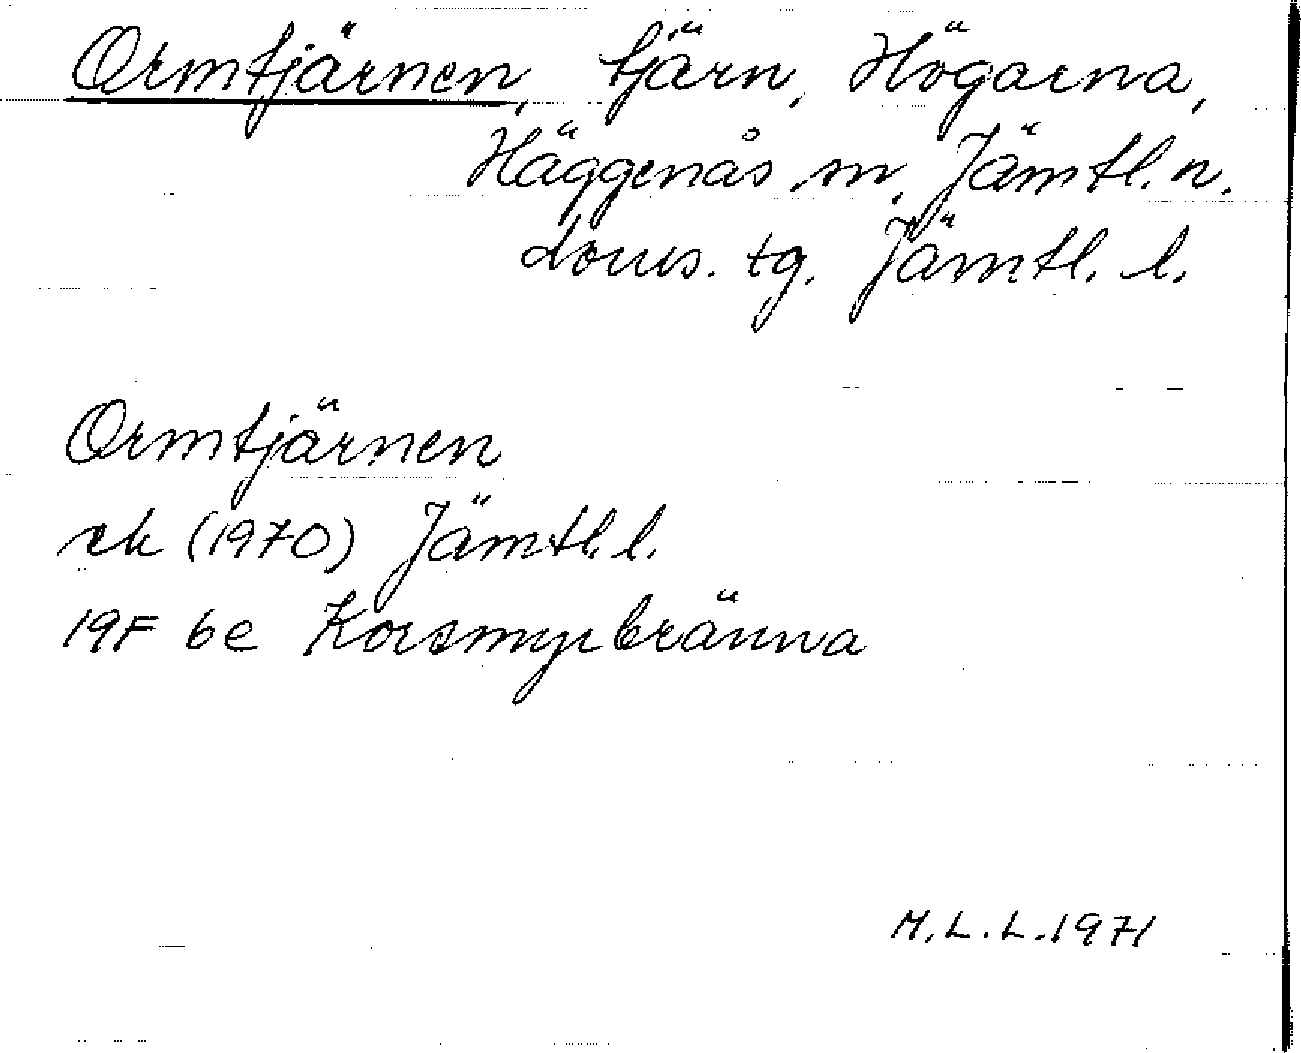 Ormtjärnen, tjärn, Högarna,
Häggenås sn, Jämtl. n.
doms. tg. Jämtl. l.
Ormtjärnen
rek (1970) Jämtl. l.
19F 6e Korsmyrbränna
M.L.L. 1971